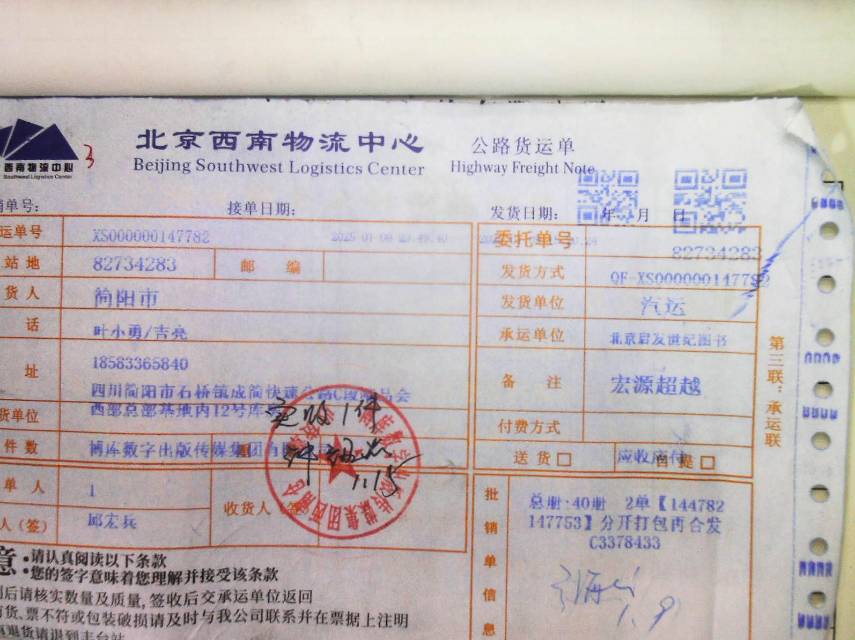 西南物流中心
Southwest Logistics Center
3
北京西南物流中心
Beijing Southwest Logistics Center
公路货运单
Highway Freight Note
单号:
接单日期:
发货日期: 年 月 日
运单号 XS000000147782
委托单号 82734283
站地 82734283 邮编
发货方式 QF-XS000000147782
货人 简阳市
发货单位 汽运
话 叶小勇/吉亮
承运单位 北京启发世纪图书
址 18583365840
四川简阳市石桥镇成简快速
备注 宏源超越
货单位 西部总部基地内12号库
付费方式
件数 博库数字出版传媒集团有
送货□ 应收应付 自提□
实收1件
1.15
单人 1
收货人
人(签) 邱宏兵
批销单信息
总册:40册 2单【144782
147753】分开打包再合发
C3378433
1.9
第三联:承运联
·请认真阅读以下条款
·您的签字意味着您理解并接受该条款
后请核实数量及质量,签收后交承运单位返回
货、票不符或包装破损请及时与我公司联系并在票据上注明